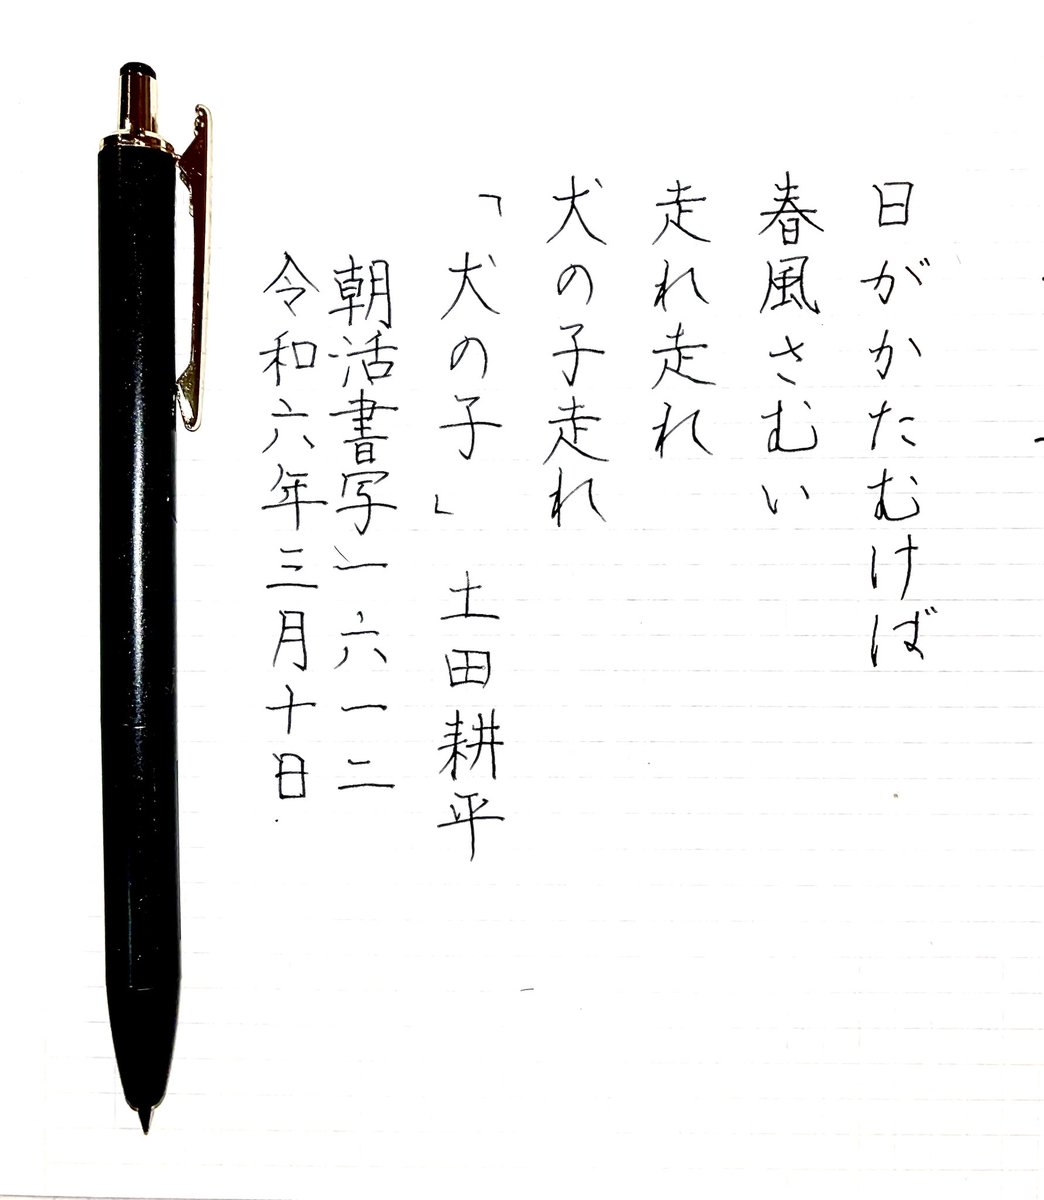 日がかたむけば
春風さむい
走れ走れ
犬の子走れ
「犬の子」 土田耕平
朝活書写一六一二
令和六年三月十日